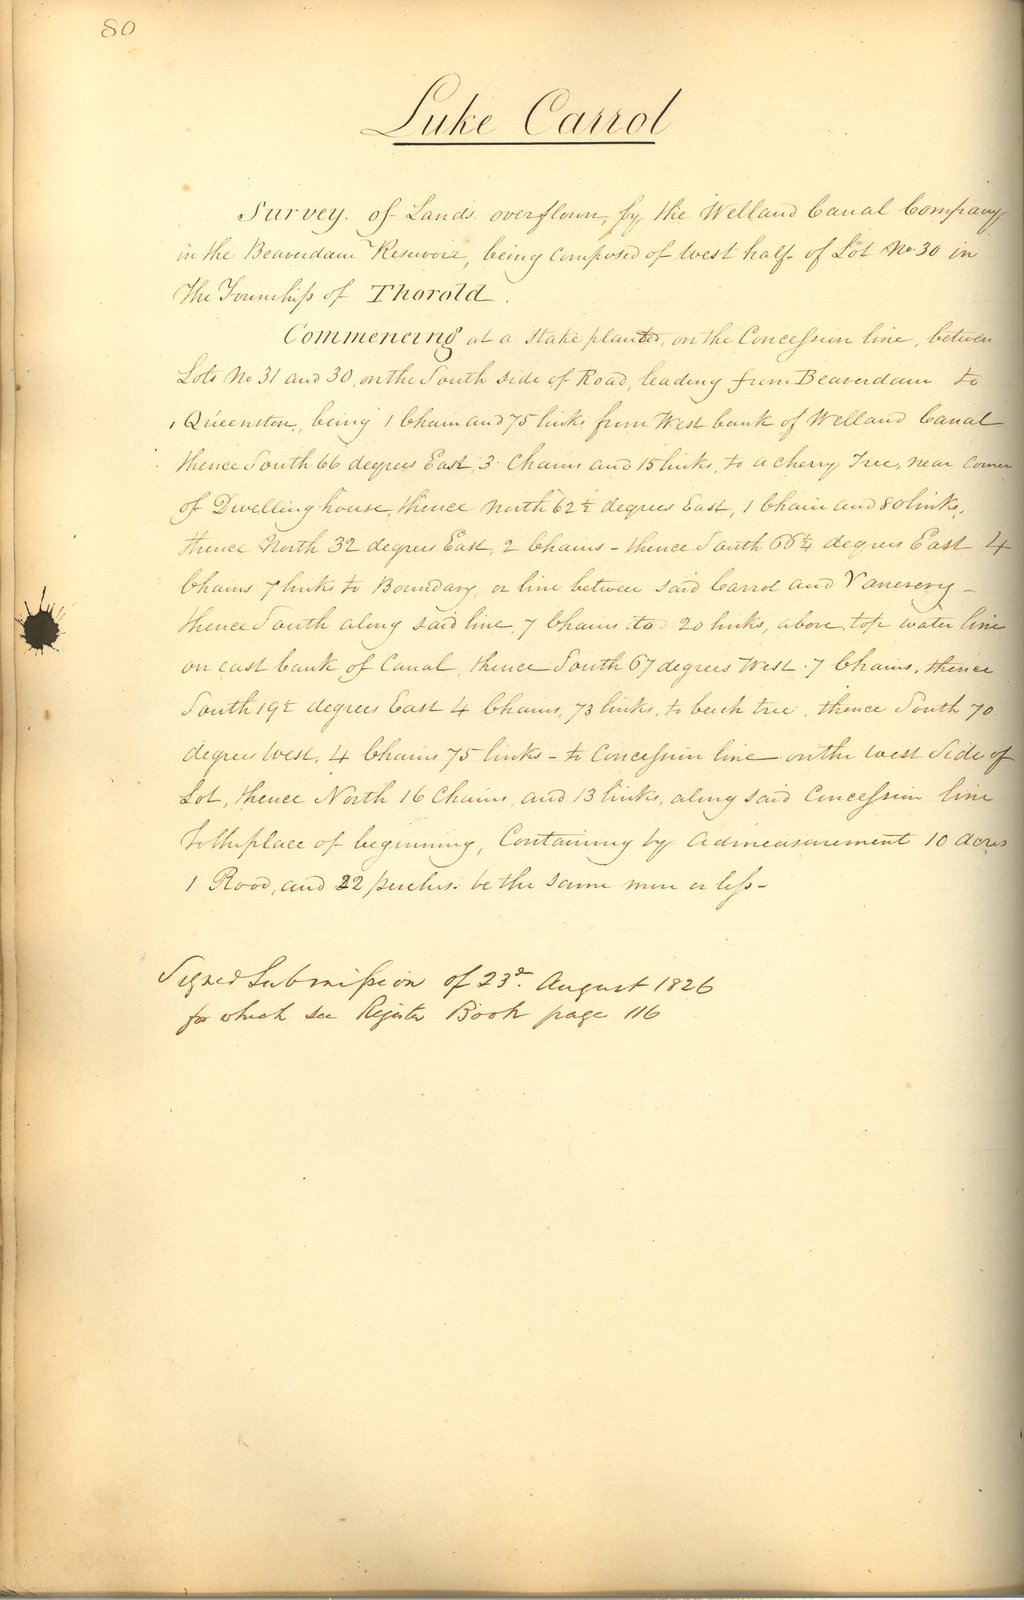 80
Luke Carrol
Survey of Lands overflown, by the Welland Canal Company
in the Beaverdam Reservoie, being composed of West half of Lot No. 30 in
the Township of Thorold.
Commencing at a stake planted, on the Concession line, between
Lots No 31 and 30, on the South side of Road, leading from Beaverdam to
Queenston, being 1 Chain and 75 links from West bank of Welland Canal
thence South 66 degrees East, 3 Chains and 15 links, to a cherry Tree, near corner
of Dwelling house, thence North 62½ degrees East, 1 Chain and 80 links,
thence North 32 degrees East, 2 Chains - thence South 66¼ degrees East 4
Chains 7 links to Boundary, or line between said Carrol and Vanevery -
thence South along said line, 7 Chains to 20 links, above top water line
on east bank of Canal, thence South 67 degrees West 7 Chains, thence
South 19½ degrees East 4 Chains, 73 links, to beech tree, thence South 70
degrees West, 4 Chains 75 links - to Concession line on the West Side of
Lot, thence North 16 Chains, and 13 links, along said Concession line
to the place of beginning, Containing by admeasurement 10 Acres
1 Rood, and 22 perches. be the same more or less -
Signed Submission of 23d. August 1826
for which see Register Book page 116